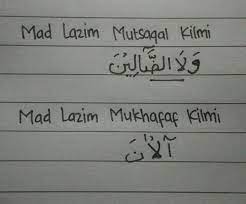 Mad Lazim Mutsaqal Kilmi
وَلَا الضَّآلِيْنَ
Mad Lazim Mukhafaf Kilmi
آلْاٰنَ